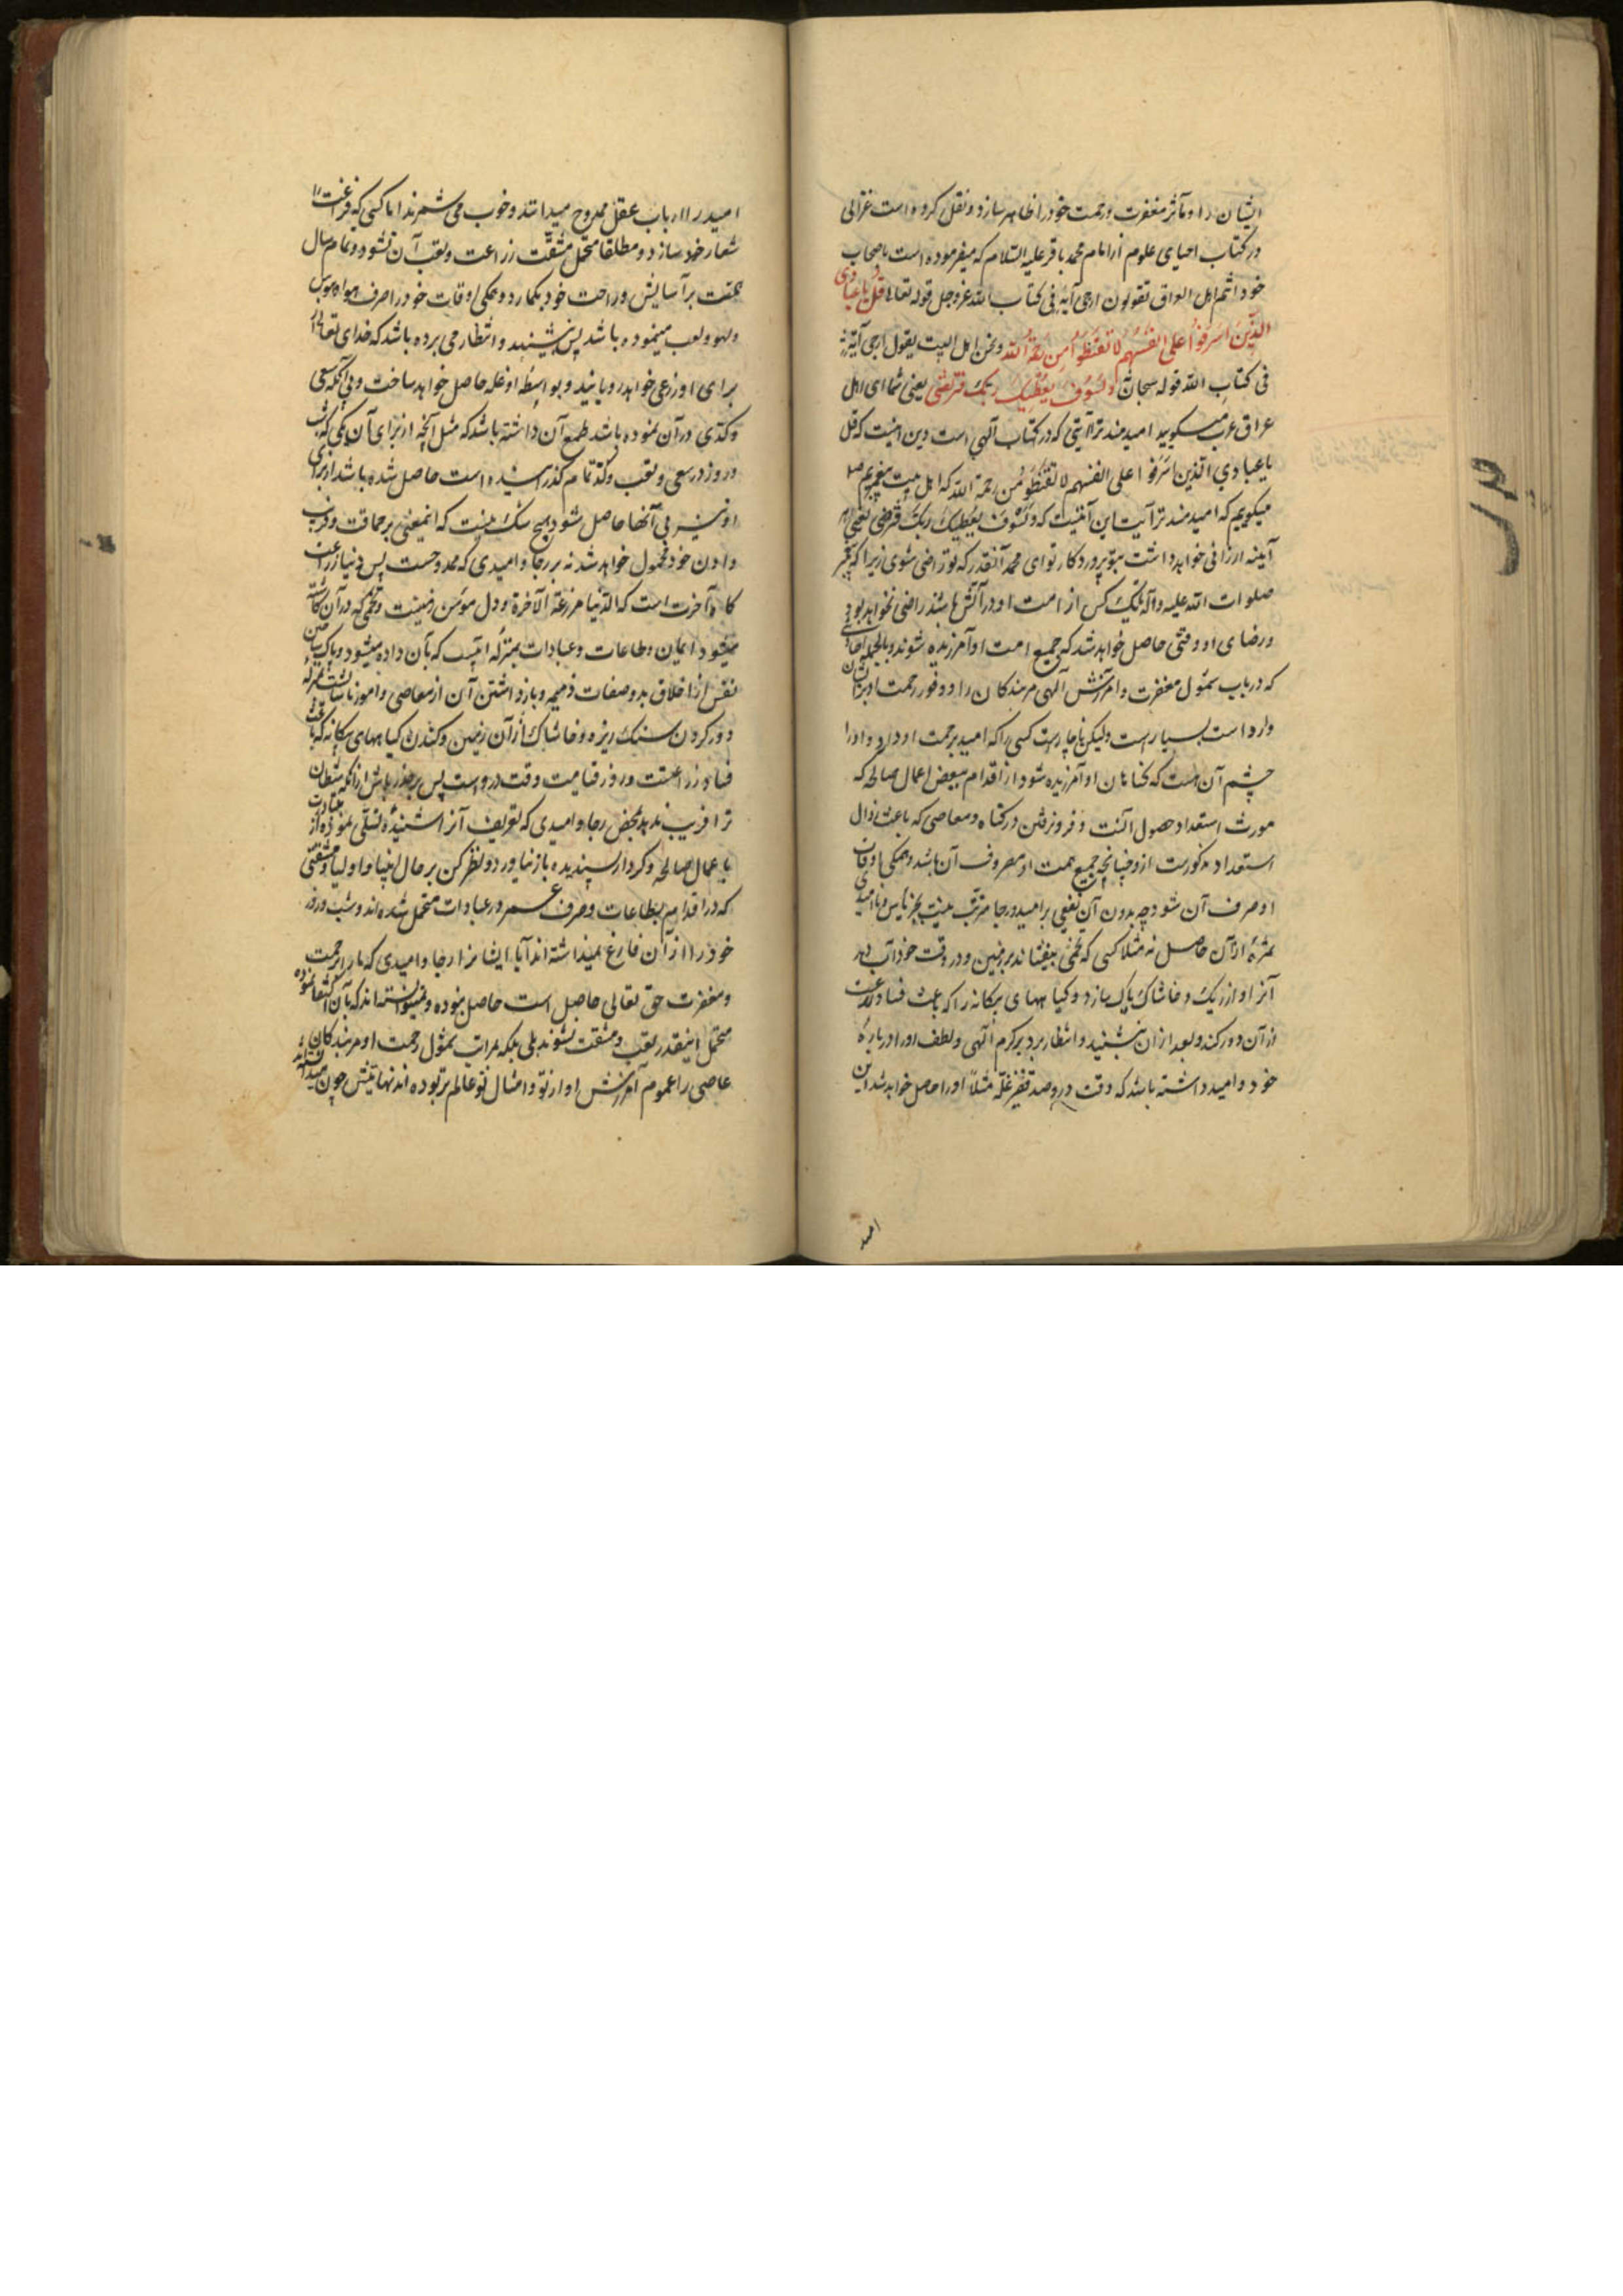 ایشان را و مآثر مغفرت و رحمت خود را ظاهر سازد و نقل کرده است غزالی
در کتاب احیای علوم از امام محمد باقر علیه السلام که میفرموده است باصحاب
خود انتم اهل العراق تقولون ارجی آیة فی کتاب الله عز و جل قوله تعالی قل یا عبادی
الذین اسرفوا علی انفسهم لا تقنطوا من رحمة الله و نحن اهل البیت نقول ارجی آیة
فی کتاب الله قوله سبحانه و لسوف یعطیک ربک فترضی یعنی شما ای اهل
عراق عرب میکویید امیدمندتر آیتی که در کتاب آلهی است این اینست که قل
یا عبادی الذین اسرفوا علی انفسهم لا تقنطوا من رحمة الله که اهل بیت پیغمبریم
میکوییم که امیدمندتر آیت این آیتیست که و لسوف یعطیک ربک فترضی یعنی
آینه ارزانی خواهد داشت بتو پروردکار تو ای محمد آنقدر که تو راضی شوی زیرا که پیغمبر
صلوات الله علیه و آله تا یک کس از امت او در آتش باشد راضی نخواهد بود
و رضای او وقتی حاصل خواهد شد که جمیع امت او آمرزیده شوند و بالجمله
که در باب شمول مغفرت و آمرزش آلهی مر بندکان را و وفور رحمت او بر ایشان
وارد است بسیار است ولیکن ناچار است کسی را که امید برحمت او دارد و او را
چشم آن هست که کناهان او آمرزیده شود از اقدام ببعض اعمال صالحه که
مورث استعداد حصول آنست و فرو نرفتن در کناه و معاصی که باعث زوال
استعداد مذکورست ازو چنانچه جمیع همت او مصروف آن باشد و همکی اوقات
او صرف آن شود چه بدون آن نفعی بر امید و رجا مترتب نیست بجز یاس و ناامیدی
ثمرۀ از آن حاصل نه مثلا کسی که تخمی بیفشاند بر زمین و در وقت خود آب دهد
آنرا و از ریک و خاشاک پاک سازد و کیاههای بیکانه را که باعث فساد زراعت
از آن دور کند و بعد از ان بنشیند و انتظار برد بر کرم آلهی و لطف او را در بارۀ
خود و امید داشته باشد که وقت درو صد قفیز غله مثلا او را حاصل خواهد شد این
امید
امید را ارباب عقل ممدوح میدانند و خوب می شمرند اما کسی که فراغت را
شعار خود سازد و مطلقا متحمل مشقت زراعت و تعب آن نشود و تمام سال
همت بر آسایش و راحت خود بکمارد و همکی اوقات خود را صرف هوا و هوس
و لهو و لعب مینموده باشد پس بنشیند و انتظار می برده باشد که خدای تعالی
برای او زرعی خواهد رویانید و بواسطه او غله حاصل خواهد ساخت و بی آنکه سعی
و کدی در آن نموده باشد طمع آن داشته باشد که مثل آنچه از برای آن یکی که شب
و روز در سعی و تعب و کد تمام کذرانیده است حاصل شده باشد از برای
او نیز بی آنها حاصل شود هیچ شک نیست که اینمعنی بر حماقت و فریب
دادن خود محمول خواهد شد نه بر رجا و امیدی که ممدوحست پس دنیا زراعت
کاه آخرت است که الدنیا مزرعة الآخرة و دل مؤمن زمینیست و تخمی که در آن کاشته
میشود ایمان و طاعات و عبادات بمنزله آبیست که بآن داده میشود و پاک ساختن
نفس از اخلاق بد و صفات ذمیمه و بازداشتن آن از معاصی و امور ناشایست بمنزله
دور کردن سنک ریزه و خاشاک از آن زمین و کندن کیاههای بیکانه که باعث
فساد زراعتست و روز قیامت وقت دروست پس بر حذر باش از آنکه شیطان
ترا فریب ندهد بمحض رجا و امیدی که تعریف آنرا شنیدۀ تسلی نموده از
باعمال صالحه و کردار پسندیده باز نیاورد و نظر کن بر حال انبیا و اولیا و مشقتی
که در اقدام بطاعات و صرف عمر در عبادات متحمل شده اند و شب و روز
خود را از آن فارغ نمیداشته اند آیا ایشانرا رجا و امیدی که ما را برحمت
و مغفرت حق تعالی حاصل است حاصل نبوده و نمیتوانسته اند که بآن اکتفا نموده
متحمل اینقدر تعب و مشقت نشوند بلی بلکه بمراتب بشمول رحمت او مر بندکان
عاصی را عموم آمرزش او از تو و امثال تو عالم تر بوده اند نهایتش چون میدانسته اند